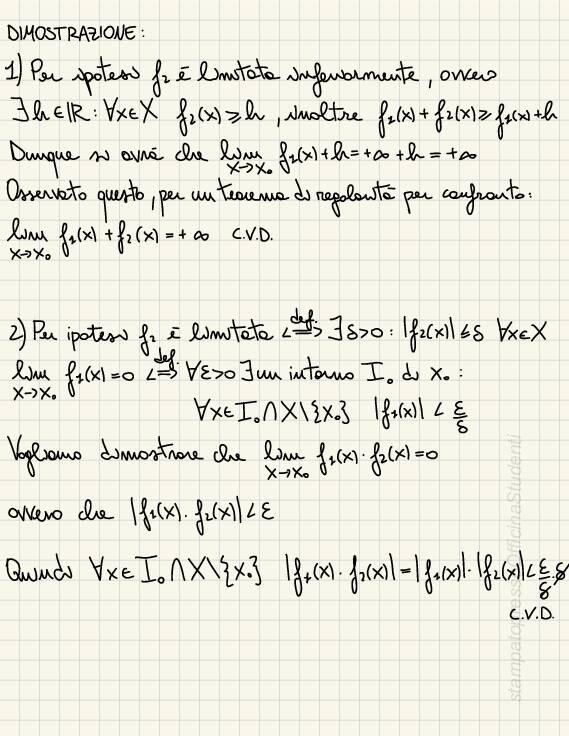 DIMOSTRAZIONE:
1) Per ipotesi f₂ è limitata inferiormente, ovvero
∃ h ∈ ℝ : ∀x∈X f₂(x) ≥ h, inoltre f₁(x) + f₂(x) ≥ f₁(x) + h
Dunque si avrà che lim x→x₀ f₁(x) + h = +∞ + h = +∞
Osservato questo, per un teorema di regolarità per confronto:
lim x→x₀ f₁(x) + f₂(x) = +∞ C.V.D.
2) Per ipotesi f₂ è limitata <=def.=> ∃ δ>0 : |f₂(x)| ≤ δ ∀x∈X
lim x→x₀ f₁(x) = 0 <=def.=> ∀ε>0 ∃ un intorno I₀ di x₀ :
∀x∈I₀∩X\{x₀} |f₁(x)| < ε/δ
Vogliamo dimostrare che lim x→x₀ f₁(x)·f₂(x) = 0
ovvero che |f₁(x)·f₂(x)| < ε
Quindi ∀x∈I₀∩X\{x₀} |f₁(x)·f₂(x)| = |f₁(x)|·|f₂(x)| < ε/δ·δ
C.V.D.